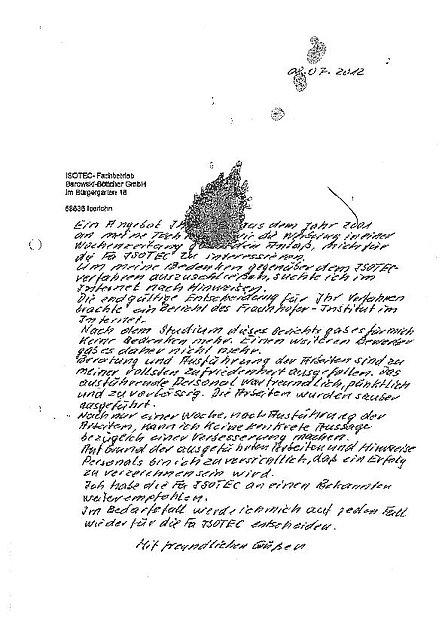 08.07.2012
ISOTEC-Fachbetrieb
Barowski-Böttcher GmbH
Im Bürgergarten 16
58636 Iserlohn
Ein Angebot aus dem Jahr 2001
an meine die Werbung in einer
Wochenzeitung dem Anlaß, mich für
die Fa ISOTEC zu interessieren.
Um meine Bedenken gegenüber dem ISOTEC-
verfahren auszuschließen, suchte ich im
Internet nach Hinweisen.
Die endgültige Entscheidung für Ihr Verfahren
brachte ein Bericht des Fraunhofer-Institut im
Internet.
Nach dem Studium dieses Berichts gab es für mich
keine Bedenken mehr. Einen weiteren Bewerber
gab es daher nicht mehr.
Beratung und Ausführung der Arbeiten sind zu
meiner vollsten Zufriedenheit ausgefallen. Das
ausführende Personal war freundlich, pünktlich
und zuverlässig. Die Arbeiten wurden sauber
ausgeführt.
Nach nur einer Woche, nach Ausführung der
Arbeiten, kann ich keine konkrete Aussage
bezüglich einer Verbesserung machen.
Auf Grund der ausgeführten Arbeiten und Hinweise
Personals bin ich zuversichtlich, daß ein Erfolg
zu verzeichnen sein wird.
Ich habe die Fa ISOTEC an einen Bekannten
weiterempfohlen.
Im Bedarfsfall werde ich mich auf jeden Fall
wieder für die Fa ISOTEC entscheiden.
Mit freundlichen Grüßen